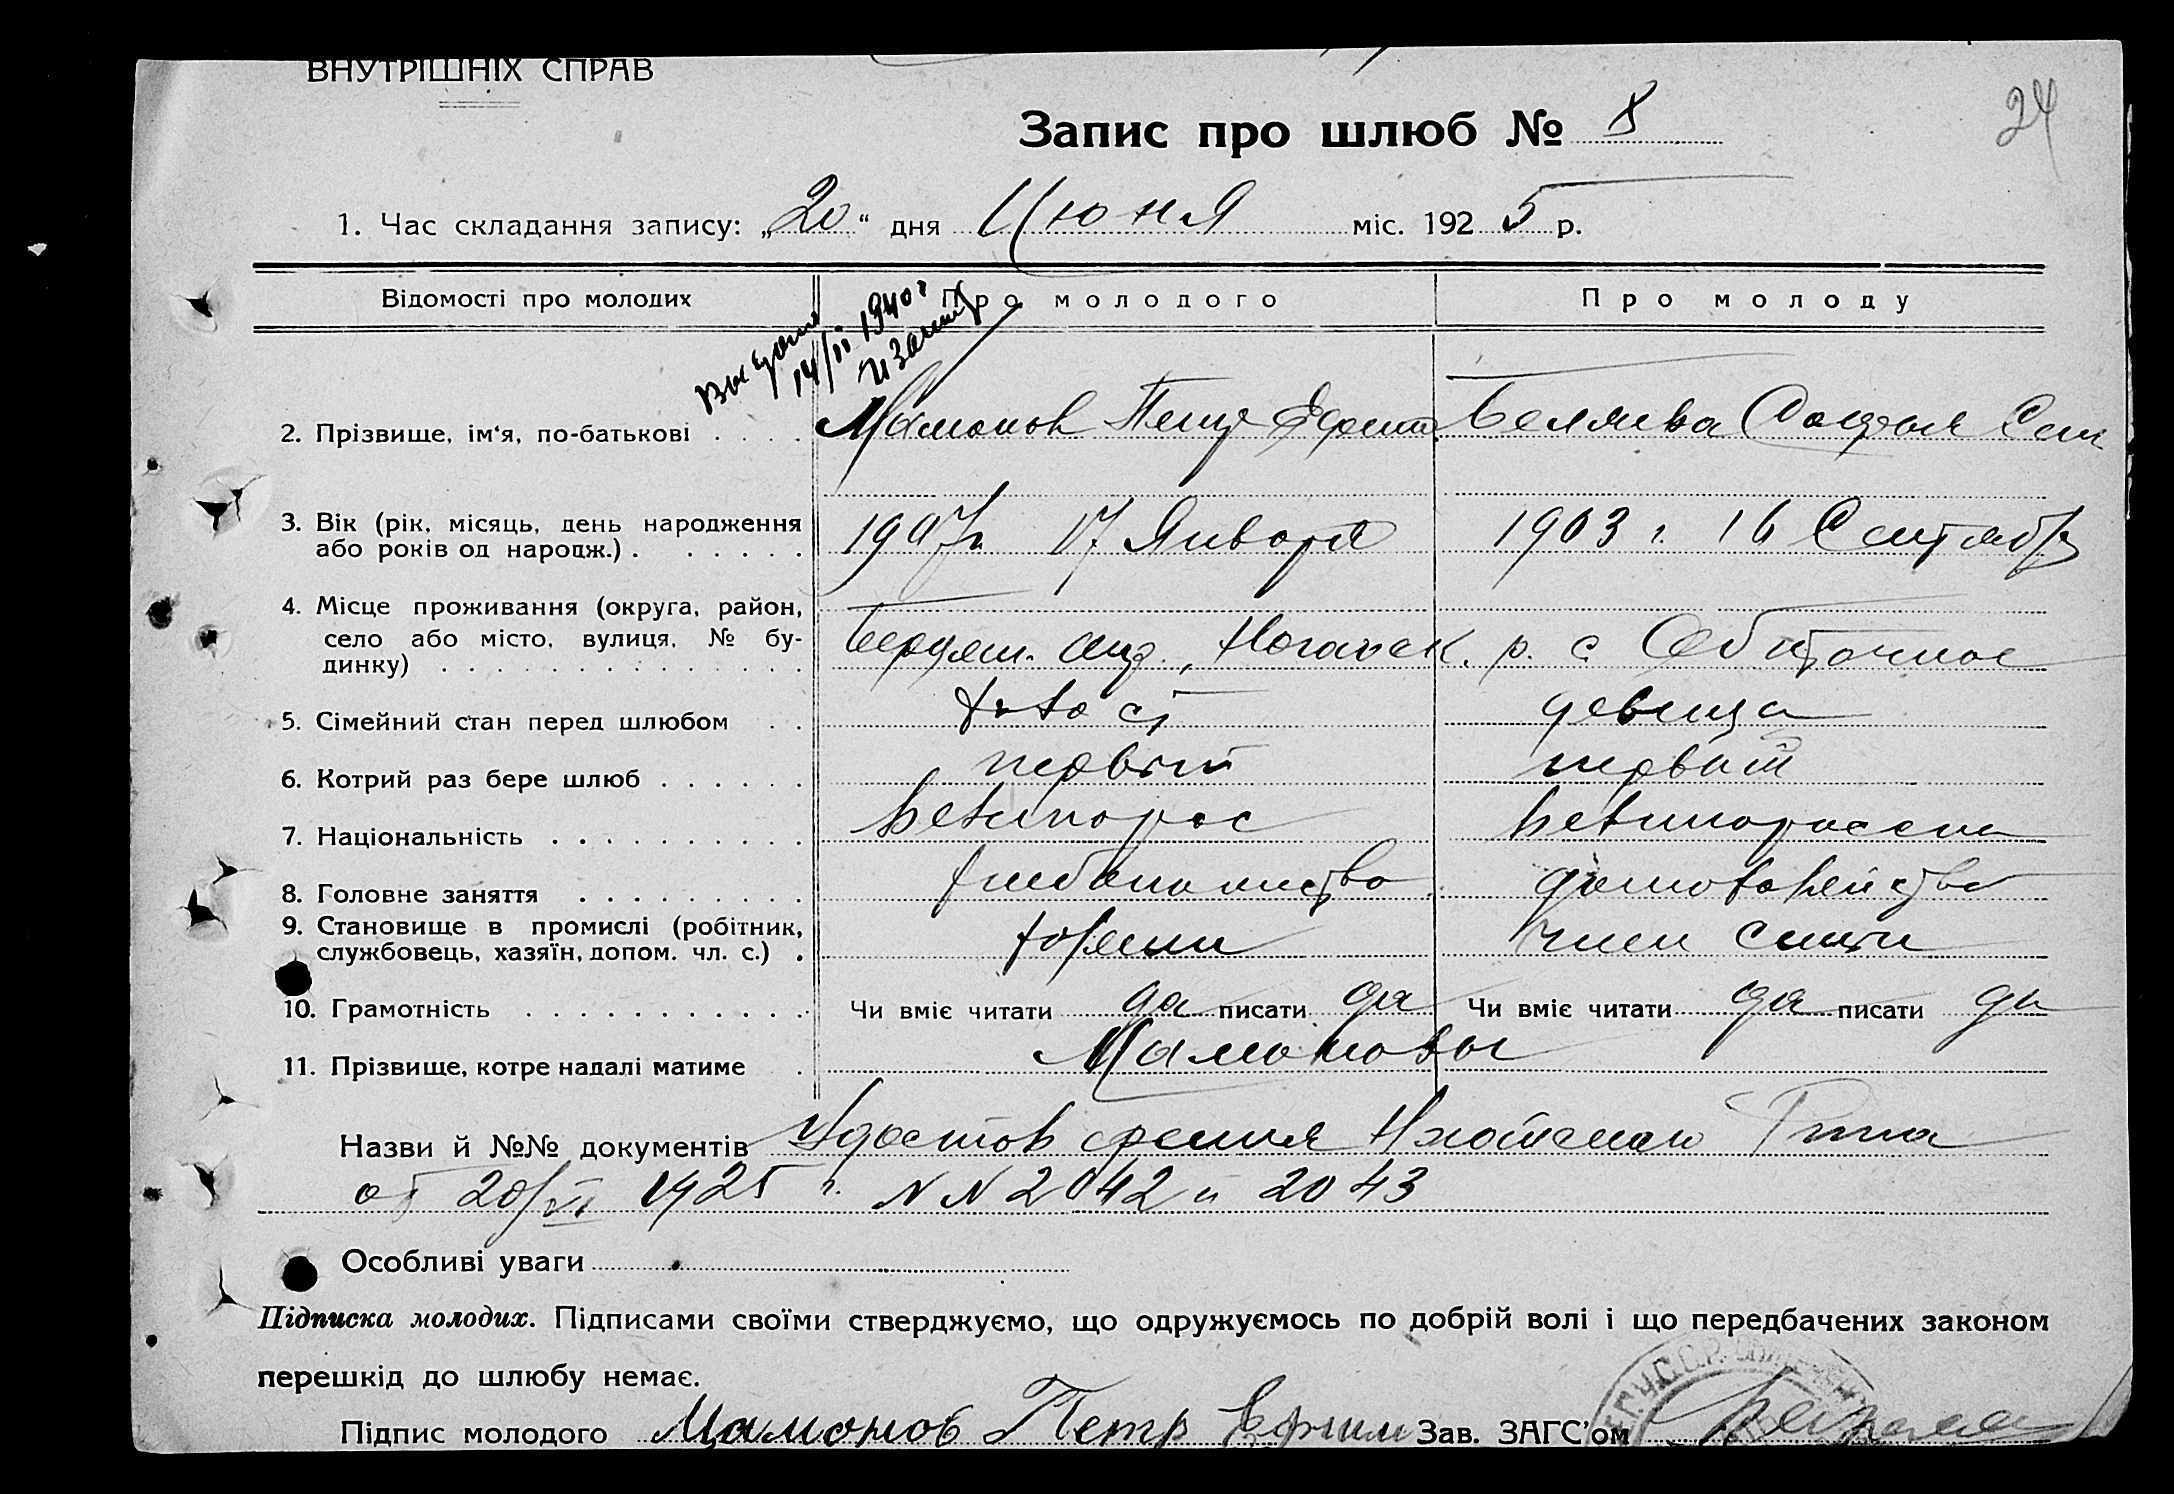 ВНУТРІШНІХ СПРАВ
24
Запис про шлюб № 8
1. Час складання запису: „20“ дня Июня міс. 1925 р.
Відомості про молодих Про молодого Про молоду
14/II 1940 г
2. Прізвище, ім‘я, по-батькові . . . . Мамонов Петр Ефим. Беляева Софья Сем
3. Вік (рік, місяць, день народження
або років од народж.) . . . . . . 1907 г. 17 Января 1903 г. 16 Сентября
4. Місце проживання (округа, район,
село або місто, вулиця, № бу-
динку) . . . . . . . . . . . . . . Бердян. окр., Ногайск. р. с. Обиточное
5. Сімейний стан перед шлюбом . . холост девица
6. Котрий раз бере шлюб . . . . . . первый первый
7. Національність . . . . . . . . . . Великорос Великоросска
8. Головне заняття . . . . . . . . . хлебопашество домохозяйство
9. Становище в промислі (робітник,
службовець, хазяїн, допом. чл. с.) . хозяин член семьи
10. Грамотність . . . . . . . . . . . . Чи вміє читати да писати да Чи вміє читати да писати да
11. Прізвище, котре надалі матиме . Мамоновы
Назви й №№ документів Удостоверения
от 20/VI 1925 г. N N 2042 и 2043
Особливі уваги
Підписка молодих. Підписами своїми стверджуємо, що одружуємось по добрій волі і що передбачених законом
перешкід до шлюбу немає.
Підпис молодого Мамонов Петр Ефим Зав. ЗАГС’ом